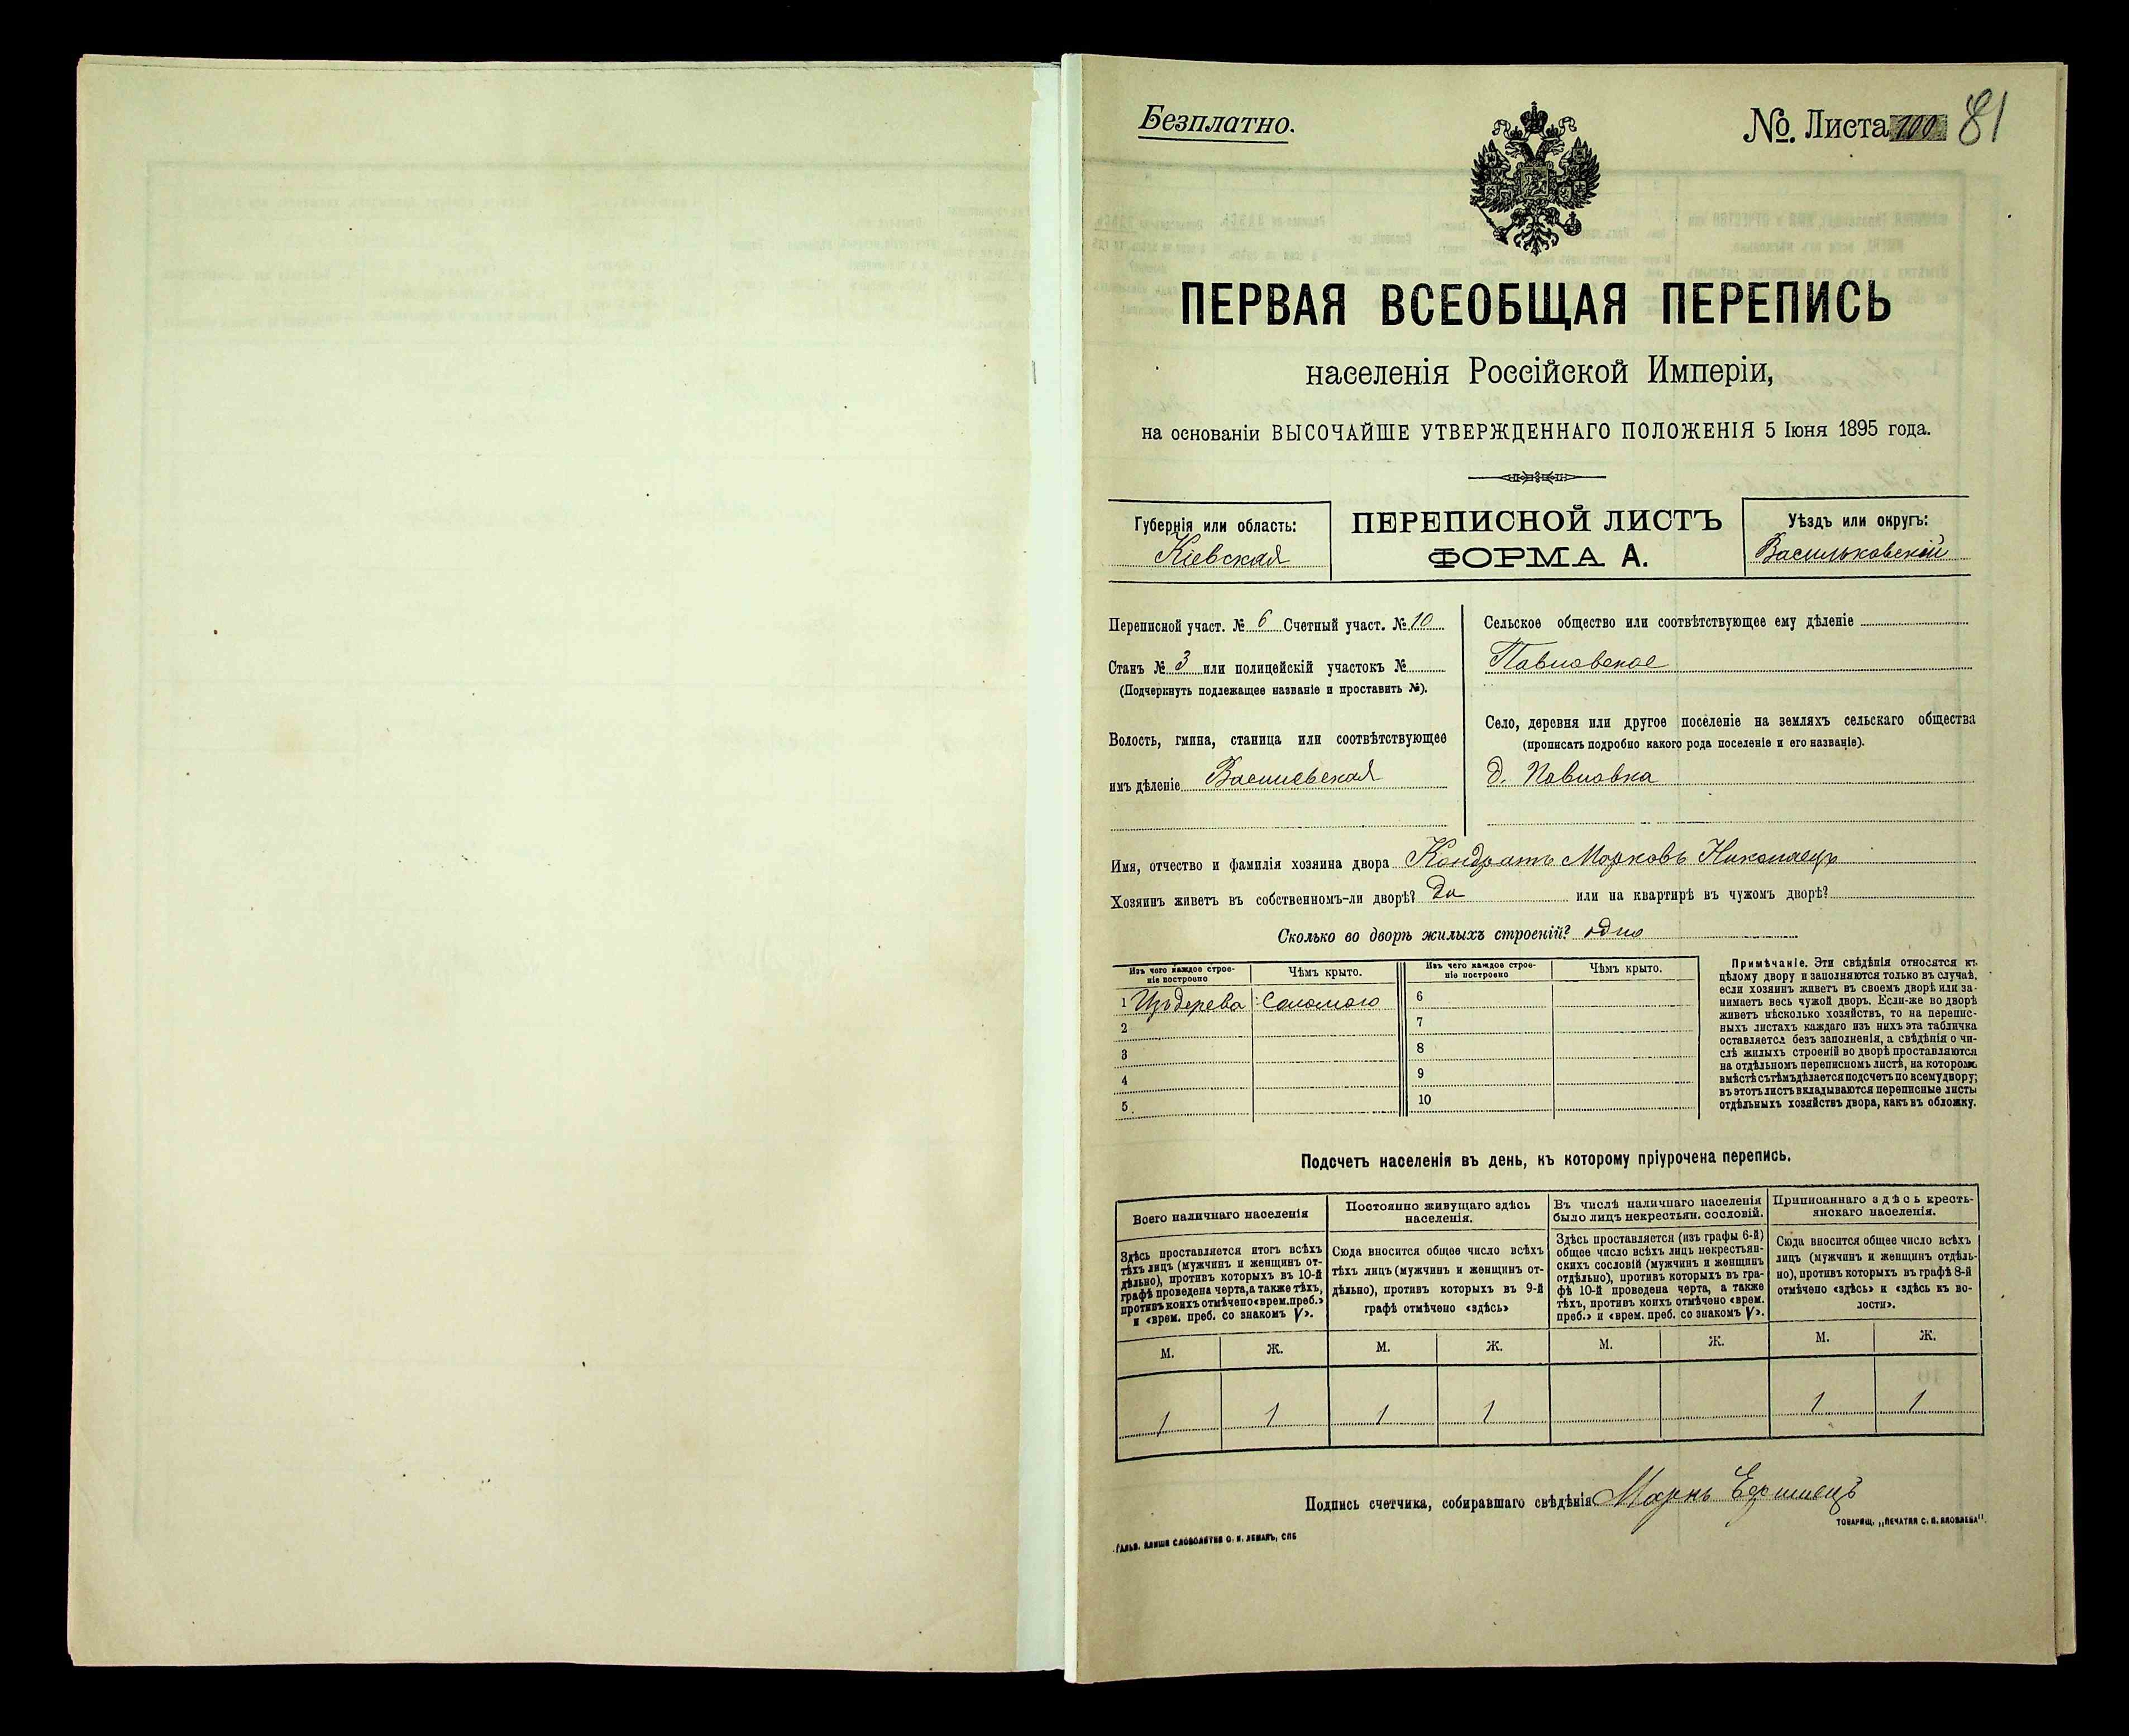 Безплатно.
№. Листа 100 81
ПЕРВАЯ ВСЕОБЩАЯ ПЕРЕПИСЬ
населенія Россійской Имперіи,
на основаніи ВЫСОЧАЙШЕ УТВЕРЖДЕННАГО ПОЛОЖЕНІЯ 5 Іюня 1895 года.
Губернія или область:
Кіевская
ПЕРЕПИСНОЙ ЛИСТЪ
ФОРМА А.
Уѣздъ или округъ:
Васильковскій
Переписной участ. № 6 Счетный участ. № 10
Станъ № 3 или полицейскій участокъ №
(Подчеркнуть подлежащее названіе и проставить №).
Волость, гмина, станица или соотвѣтствующее
имъ дѣленіе Васильевская
Сельское общество или соотвѣтствующее ему дѣленіе
Павловское
Село, деревня или другое поселеніе на земляхъ сельскаго общества
(прописать подробно какого рода поселеніе и его названіе).
д. Павловка
Имя, отчество и фамилія хозяина двора Кондратъ Марковъ Николаецъ
Хозяинъ живетъ въ собственномъ-ли дворѣ? Да или на квартирѣ въ чужомъ дворѣ?
Сколько во дворѣ жилыхъ строеній? одно
Изъ чего каждое строе-
ніе построено
Чѣмъ крыто.
Изъ чего каждое строе-
ніе построено
Чѣмъ крыто.
1 Изъ дерева Соломою 6
2 7
3 8
4 9
5. 10
Примѣчаніе. Эти свѣдѣнія относятся къ
цѣлому двору и заполняются только въ случаѣ,
если хозяинъ живетъ въ своемъ дворѣ или за-
нимаетъ весь чужой дворъ. Если-же во дворѣ
живетъ нѣсколько хозяйствъ, то на перепис-
ныхъ листахъ каждаго изъ нихъ эта табличка
оставляется безъ заполненія, а свѣдѣнія о чи-
слѣ жилыхъ строеній во дворѣ проставляются
на отдѣльномъ переписномъ листѣ, на которомъ
вмѣстѣ съ тѣмъ дѣлается подсчетъ по всему двору;
въ этотъ листъ вкладываются переписные листы
отдѣльныхъ хозяйствъ двора, какъ въ обложку.
Подсчетъ населенія въ день, къ которому пріурочена перепись.
Всего наличнаго населенія
Здѣсь проставляется итогъ всѣхъ
тѣхъ лицъ (мужчинъ и женщинъ от-
дѣльно), противъ которыхъ въ 10-й
графѣ проведена черта, а также тѣхъ,
противъ коихъ отмѣчено «врем. преб.»
и «врем. преб. со знакомъ V».
Постоянно живущаго здѣсь
населенія.
Сюда вносится общее число всѣхъ
тѣхъ лицъ (мужчинъ и женщинъ от-
дѣльно), противъ которыхъ въ 9-й
графѣ отмѣчено «здѣсь»
Въ числѣ наличнаго населенія
было лицъ некрестьян. сословій.
Здѣсь проставляется (изъ графы 6-й)
общее число всѣхъ лицъ некрестьян-
скихъ сословій (мужчинъ и женщинъ
отдѣльно), противъ которыхъ въ гра-
фѣ 10-й проведена черта, а также
тѣхъ, противъ коихъ отмѣчено «врем.
преб.» и «врем. преб. со знакомъ V».
Приписаннаго здѣсь кресть-
янскаго населенія.
Сюда вносится общее число всѣхъ
лицъ (мужчинъ и женщинъ отдѣль-
но), противъ которыхъ въ графѣ 8-й
отмѣчено «здѣсь» и «здѣсь къ во-
лости».
М. Ж. М. Ж. М. Ж. М. Ж.
1 1 1 1 1 1
Подпись счетчика, собиравшаго свѣдѣнія
ТОВАРИЩ. „ПЕЧАТНЯ С. П. ЯКОВЛЕВА".
ГАЛЬВ. КЛИШЕ СЛОВОЛИТНИ О. И. ЛЕМАНЪ, СПБ